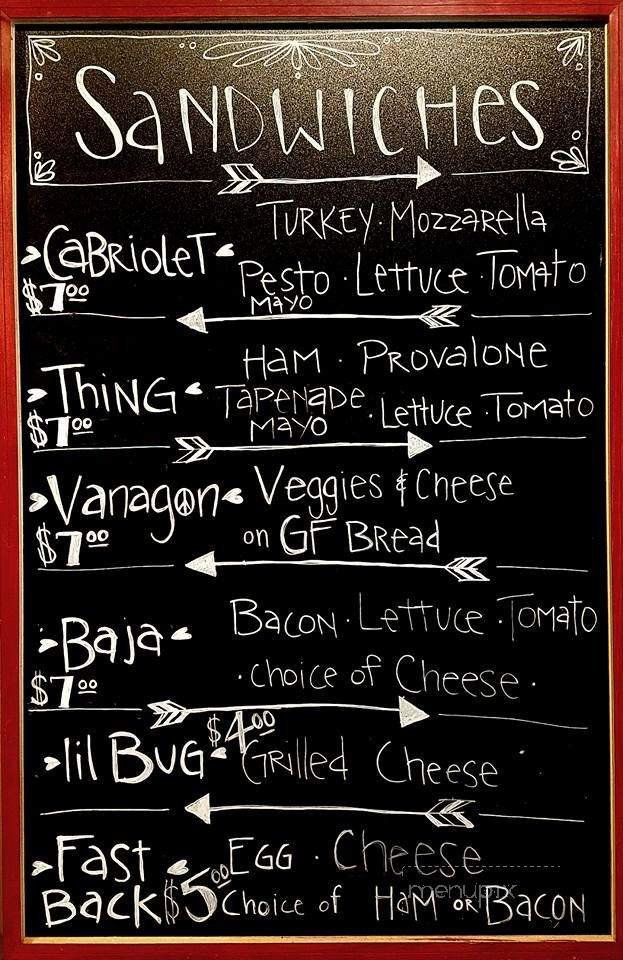 SANDWICHES
TURKEY · MOZZARELLA
CABRIOLET
PESTO · LETTUCE · TOMATO
$7.00
MAYO
HAM · PROVALONE
THING
TAPENADE · LETTUCE · TOMATO
$7.00
MAYO
Vanagon
Veggies & Cheese
$7.00
on GF Bread
Bacon · Lettuce · Tomato
Baja
· choice of Cheese ·
$7.00
$4.00
lil Bug
Grilled Cheese
Fast
Egg · Cheese
menupix
Back
$5.00
Choice of Ham or Bacon